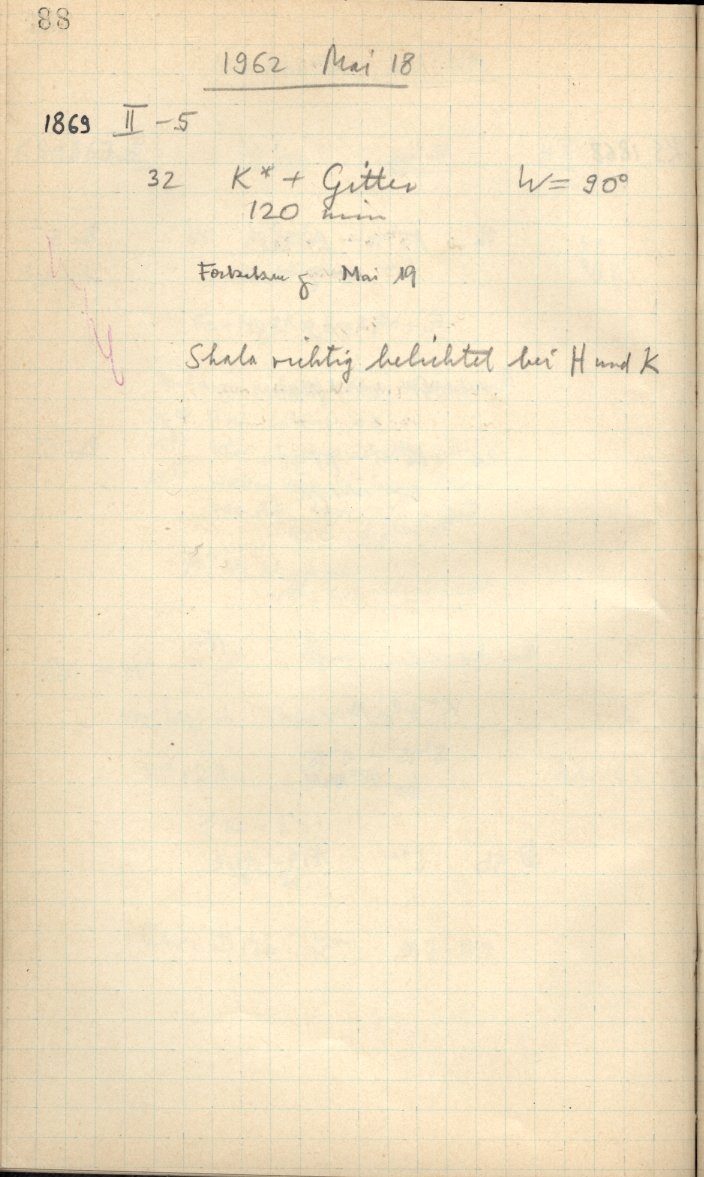 88
1962 Mai 18
1869 II - 5
32 K* + Gitter W = 90°
120 min
Fortsetzung Mai 19
Skala richtig belichtet bei H und K